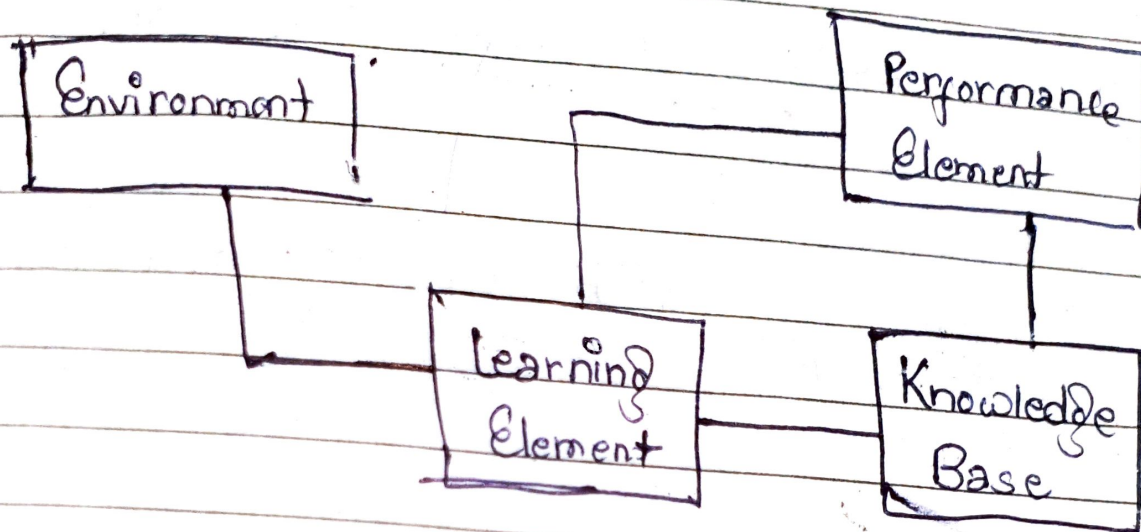 Environment
Performance
Element
Learning
Element
Knowledge
Base